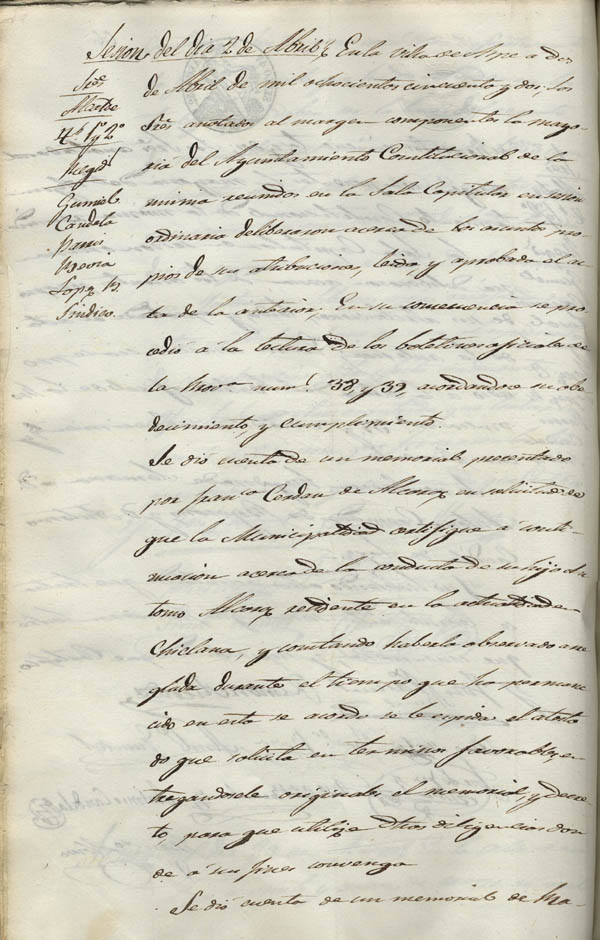 Sesion del dia 2 de Abril
Sres
Alcalde
4º 1º y 2º
Regid.
Gumiel
Candela
Parres
Irevia
Lopez M.
Sindico.
En la villa de Aspe a dos
de Abril de mil ochocientos cincuenta y dos: los
Sres anotados al margen componentes la mayo-
ria del Ayuntamiento Constitucional de la
misma reunidos en la Sala Capitular en sesion
ordinaria deliberaron acerca de los asuntos pro-
pios de sus atribuciones, leida y aprobada el ac-
ta de la anterior; En su consecuencia se pro-
cedió á la lectura de los boletines oficiales de
la Prova. num.s 38, y 39, acordandose su obe-
decimiento, y cumplimiento.
Se dió cuenta de un memorial presentado
por Franca Cerdan de Alcaraz en solicitud de
que la Municipalidad certifique á conti-
nuacion acerca de la conducta de su hijo An-
tonio Alcaraz residente en la actualidad en
Chiclana, y constando haberla observado arre-
glada durante el tiempo que ha permane-
cido en esta se acordó se le espida el atesta-
do que solicita en terminos favorables, en-
tregandosele originales el memorial y decre-
to, para que utilize dhas diligencias don-
de á sus fines convenga
Se dió cuenta de un memorial de Ma-